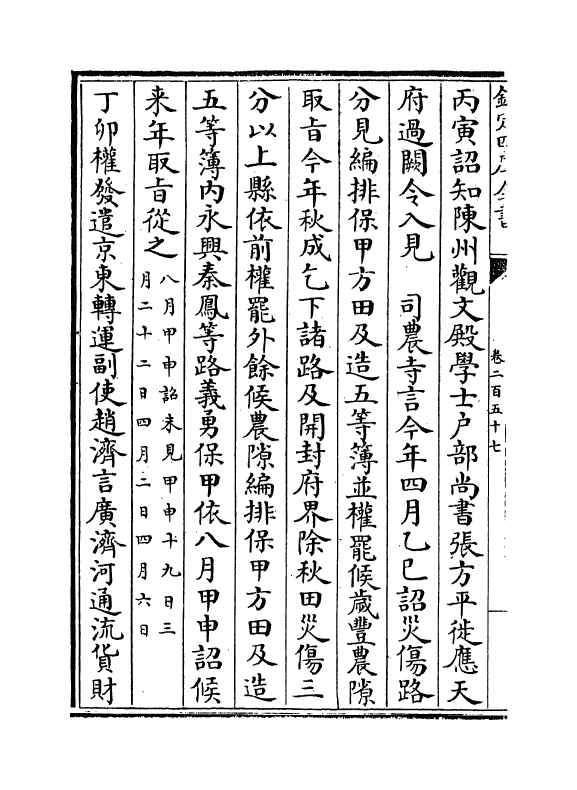 欽定四庫全書
卷二百五十七
丙寅詔知陳州觀文殿學士户部尚書張方平徙應天
府過闕令入見　司農寺言今年四月乙巳詔災傷路
分見編排保甲方田及造五等簿並權罷候歲豐農隙
取旨今年秋成乞下諸路及開封府界除秋田災傷三
分以上縣依前權罷外餘候農隙編排保甲方田及造
五等簿内永興秦鳳等路義勇保甲依八月甲申詔候
來年取旨從之八月甲申詔未見甲申十九日三
月二十二日四月二日四月六日
丁卯權發遣京東轉運副使趙濟言廣濟河通流貨財